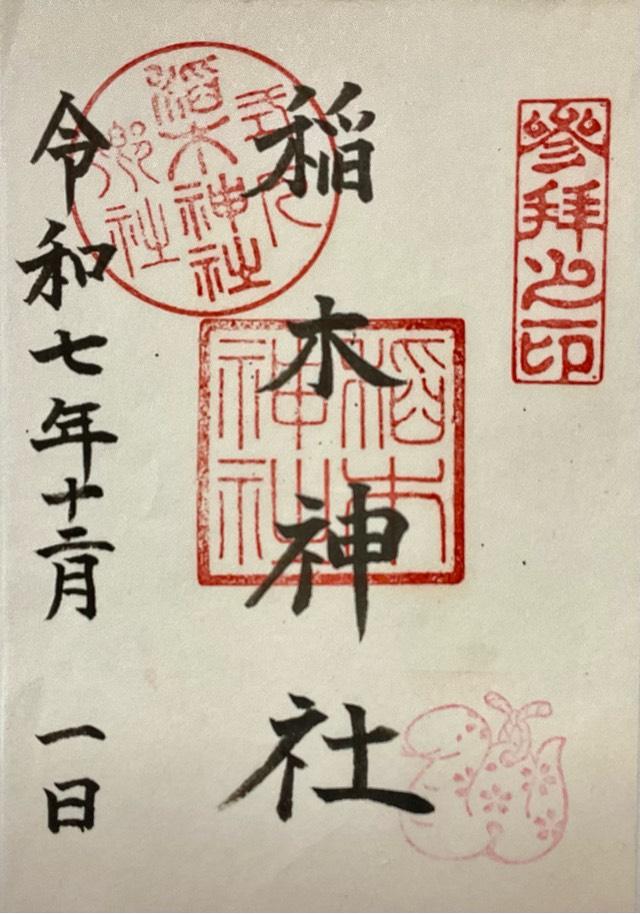 參拜之印
稲木神社
稲木神社
稲木神社
郷社
令和七年十二月 一日